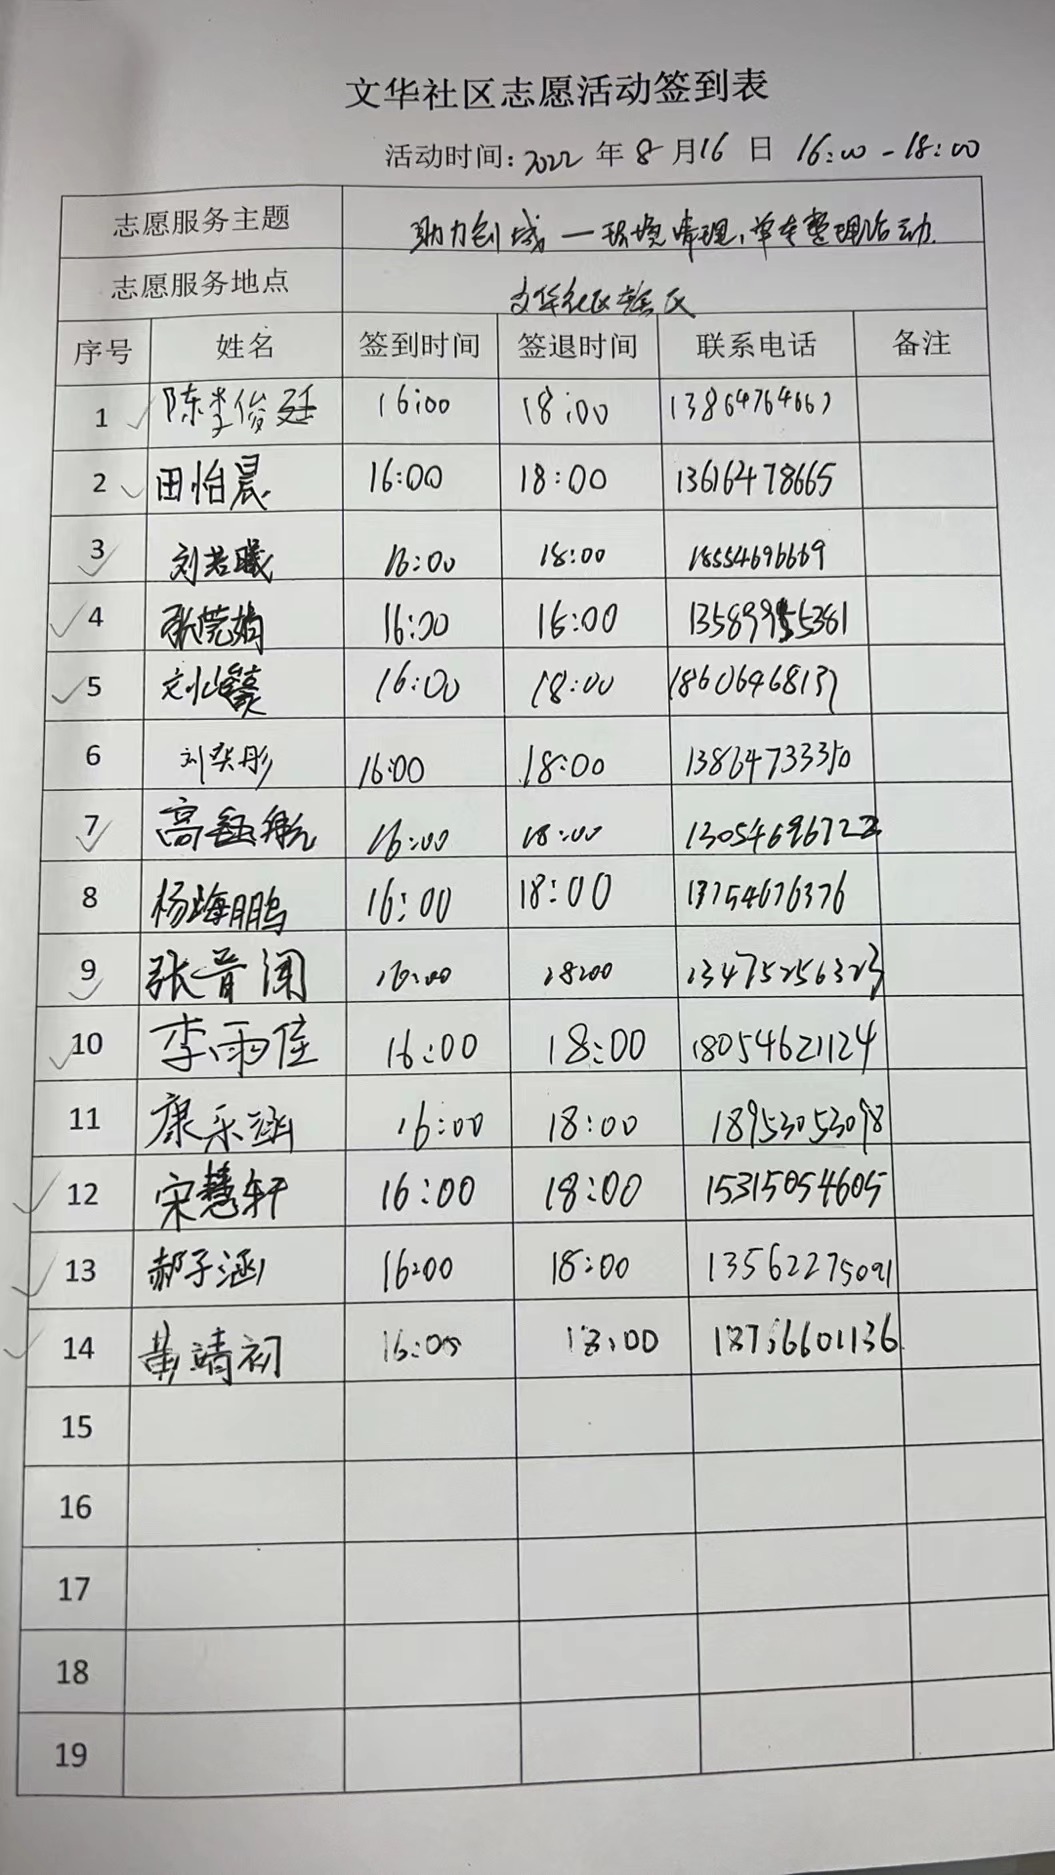 文华社区志愿活动签到表
活动时间：2022 年 8 月 16 日 16:00-18:00
志愿服务主题 助力创城—环境清理、单车整理活动
志愿服务地点 文华社区辖区
序号 姓名 签到时间 签退时间 联系电话 备注
1 陈李俊廷 16:00 18:00
2 田怡晨 16:00 18:00 13616478665
3 刘若曦 16:00 18:00 18554696669
4 张芫嫡 16:00 16:00
5 16:00 18:00
6 刘奕彤 16:00 18:00 13864733350
7 高钰航 16:00 18:00
8 杨海鹏 16:00 18:00
9 张晋闻 16:00 18:00
10 李雨佳 16:00 18:00 18054621124
11 康乐涵 16:00 18:00 18953053098
12 宋慧轩 16:00 18:00 15315054605
13 郝子涵 16:00 18:00 13562275091
14 黄靖初 16:00 18:00
15
16
17
18
19